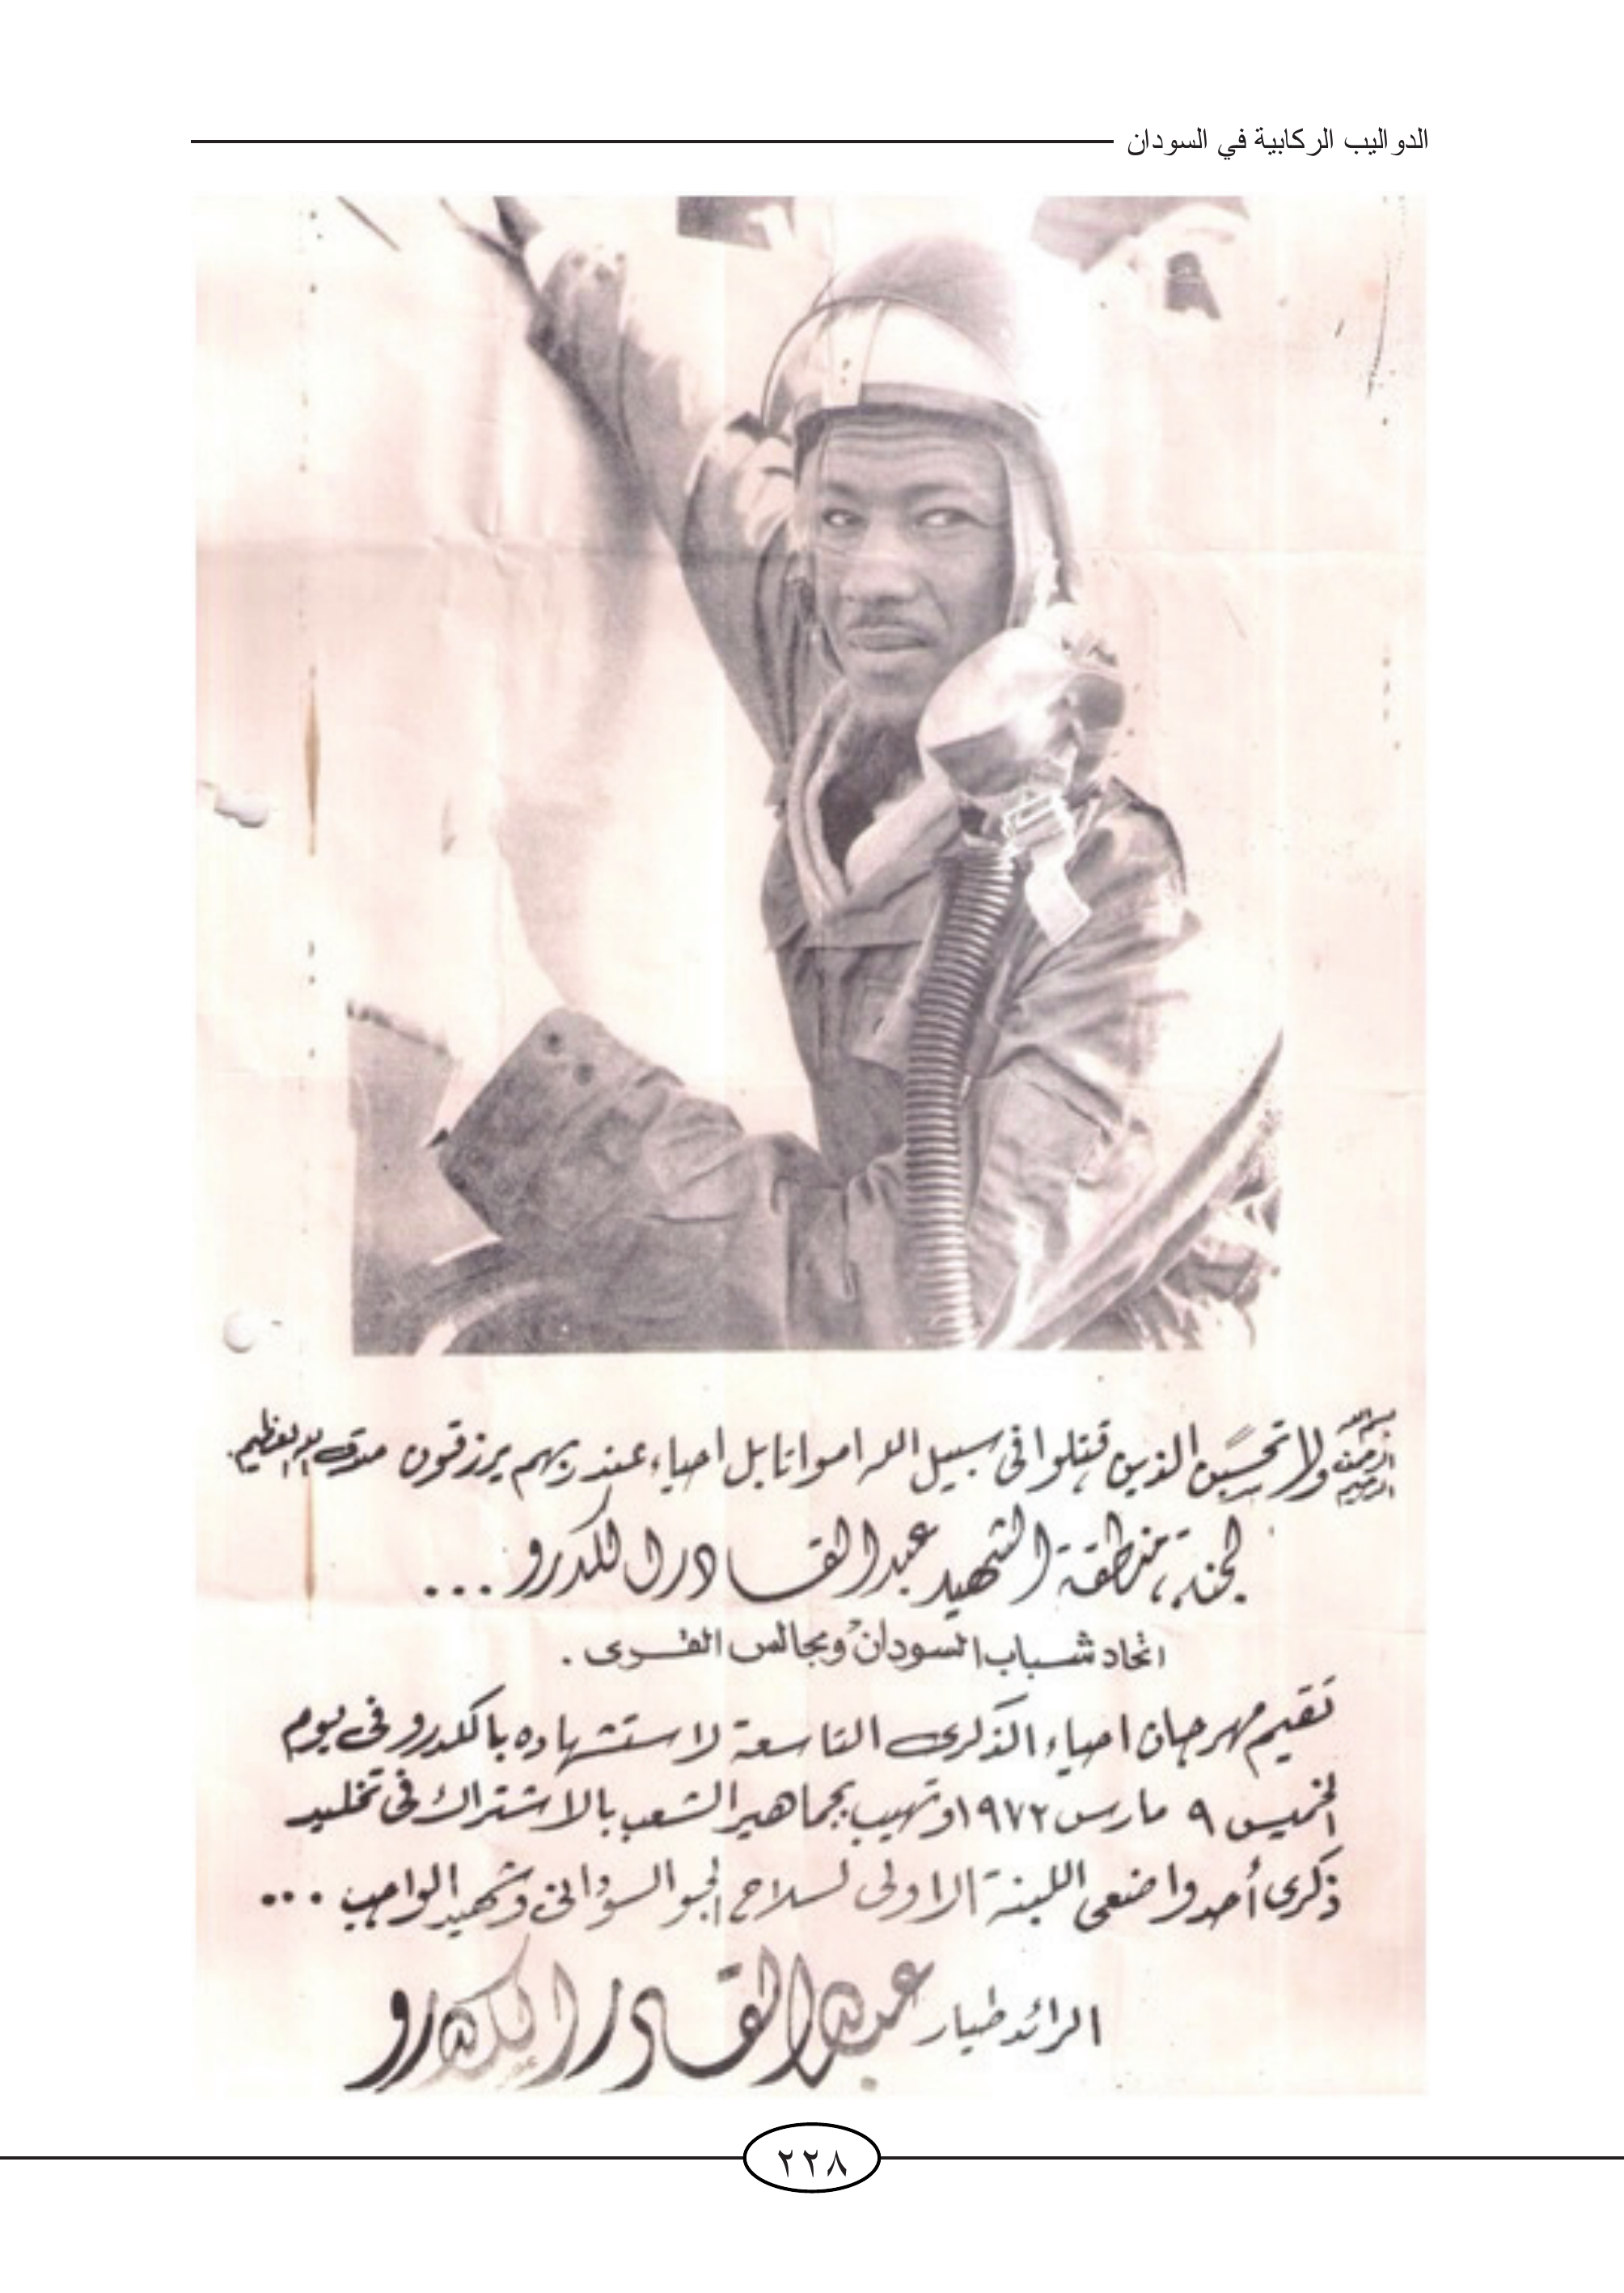 الدواليب الركابية في السودان
بسم الله الرحمن الرحيم ولا تحسبن الذين قتلوا فى سبيل الله امواتا بل احياء عند ربهم يرزقون صدق الله العظيم.
لجنة منطقة الشهيد عبدالقادر الكدرو...
اتحاد شباب السودان ومجالس القرى.
تقيم مهرجان احياء الذكرى التاسعة لاستشهاده بالكدرو فى يوم
الخميس ٩ مارس ١٩٧٢ وتهيب بجماهير الشعب بالاشتراك فى تخليد
ذكرى أحد واضعى اللبنة الاولى لسلاح الجو السودانى وشهيد الواجب ...
الرائد طيار عبدالقادر الكدرو
٢٢٨